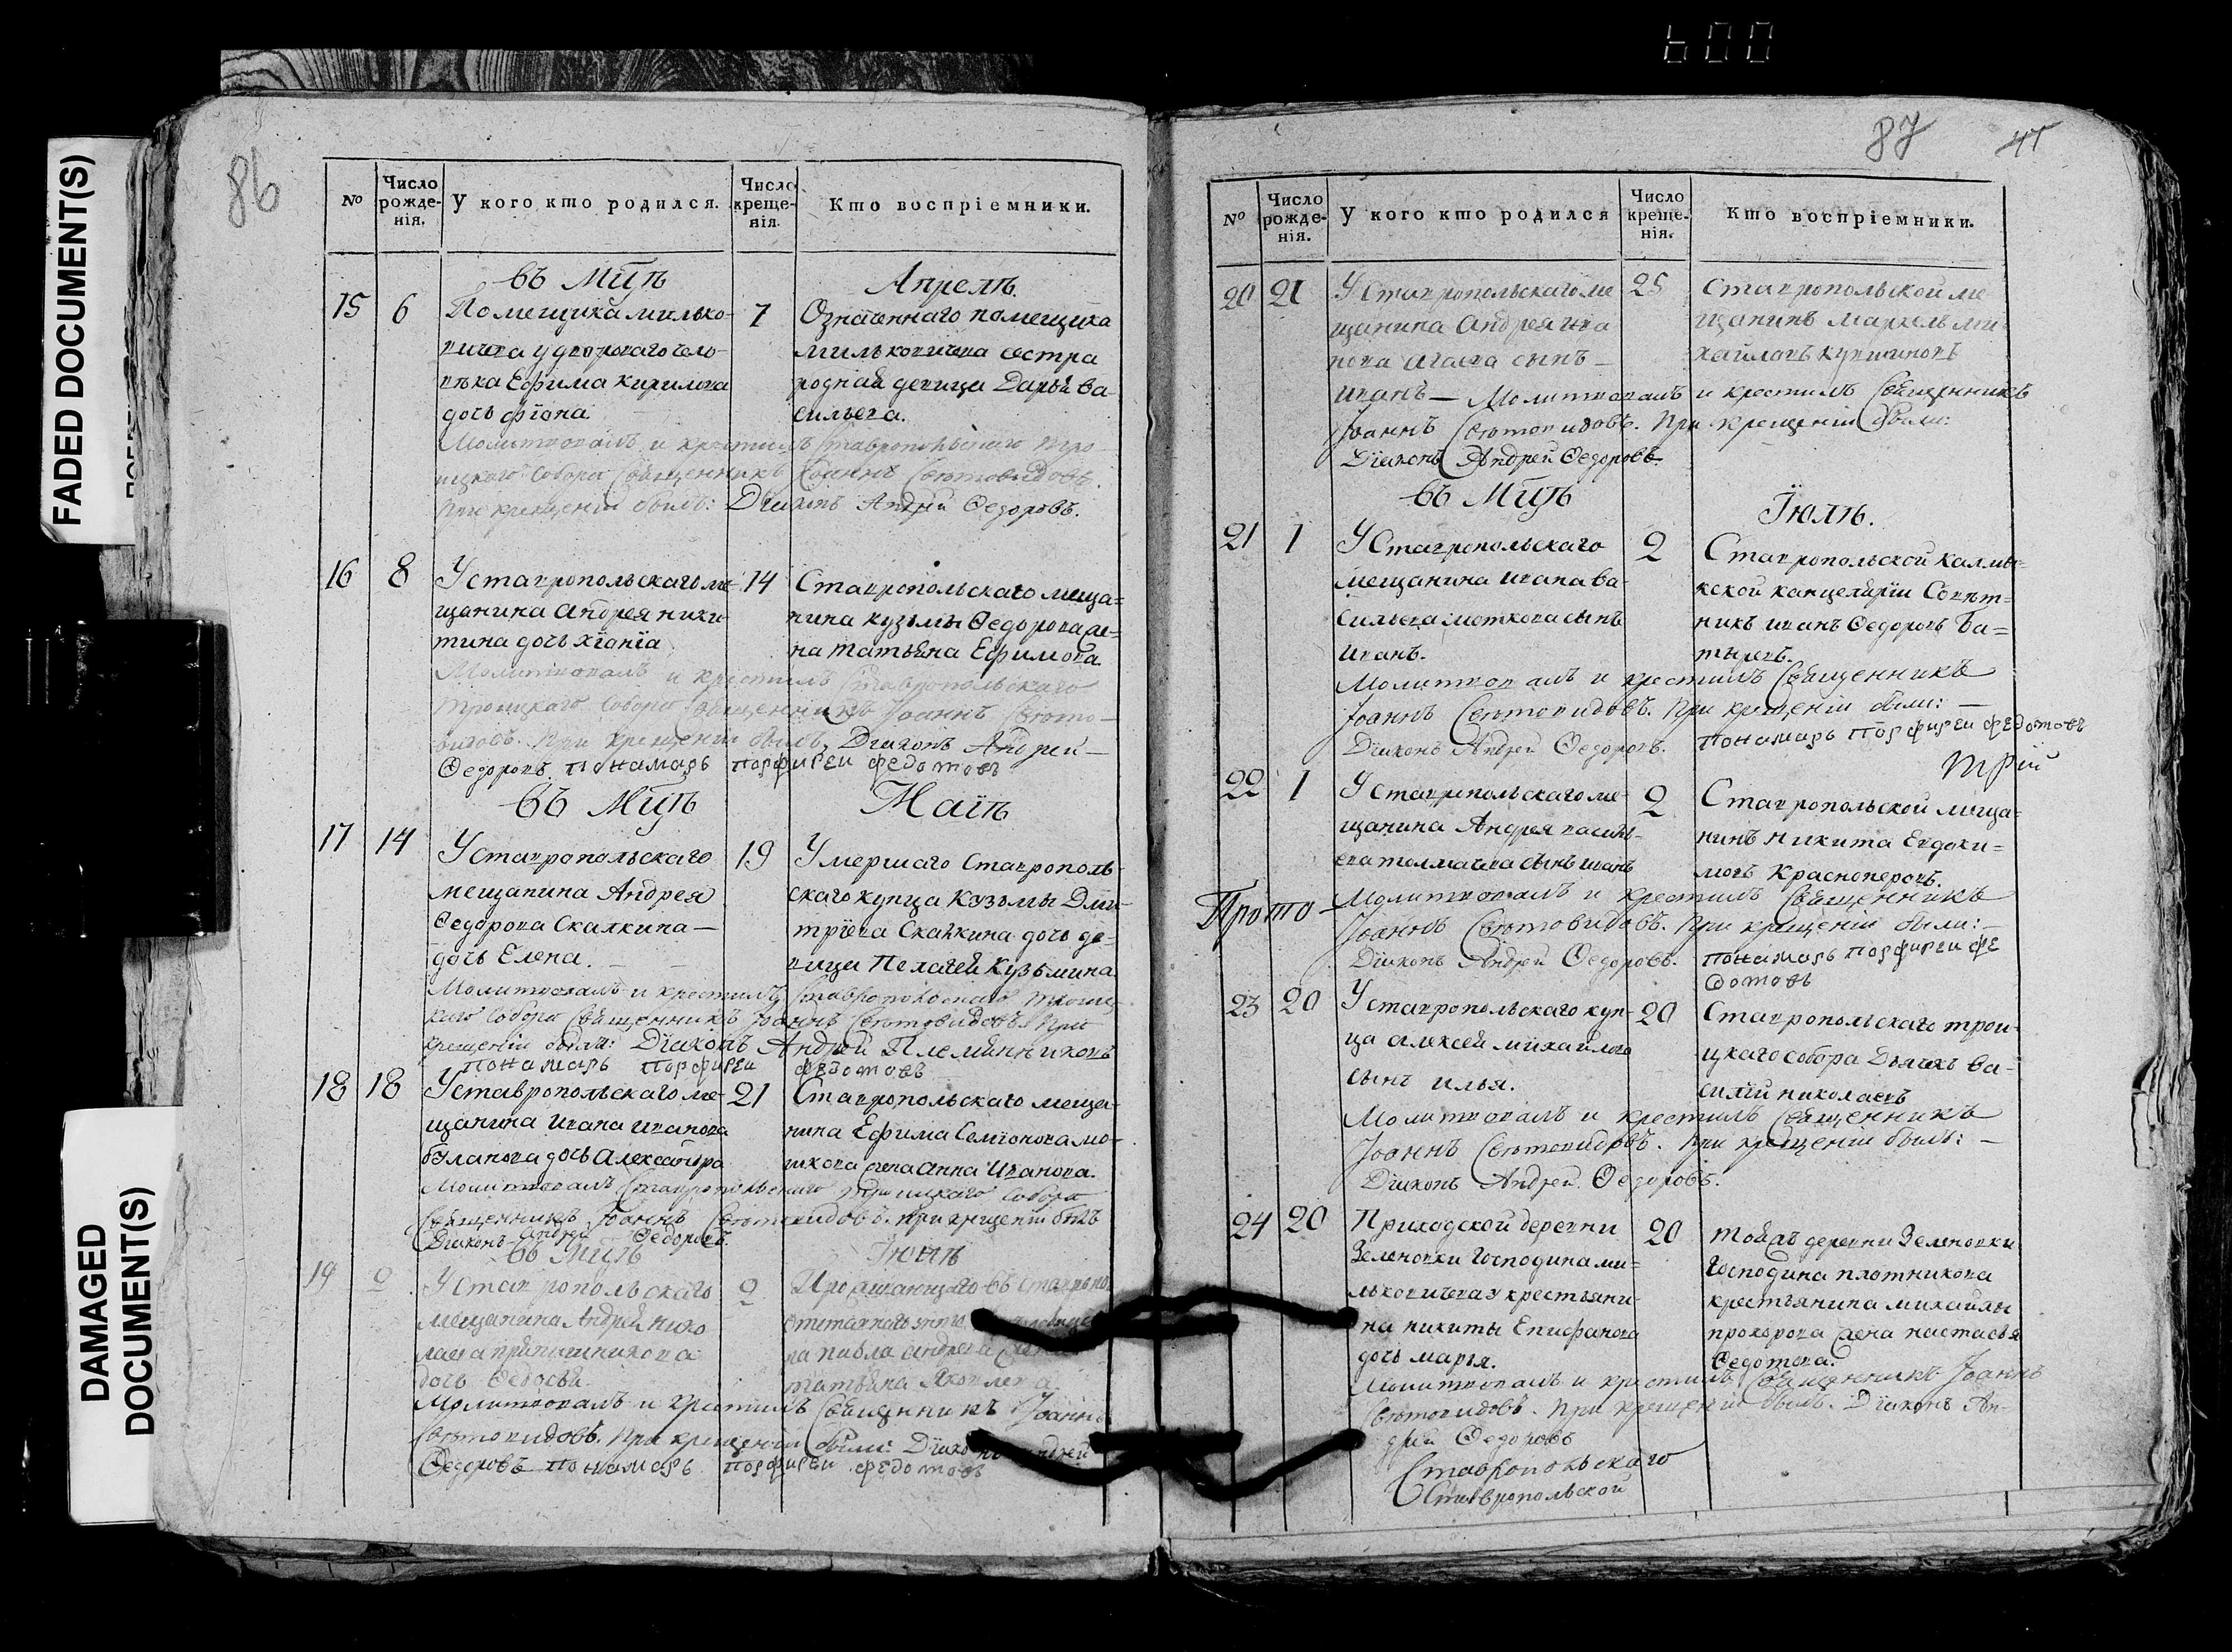 600
FADED DOCUMENT(S)
DAMAGED
DOCUMENT(S)
86
№
Число рожде-нія.
У кого кто родился.
Число креще-нія.
Кто воспріемники.
въ Мцѣ
Апрелѣ.
15
6
Помещика милько-
вичева у дворового чело-
века Ефима Кирилова
дочь фіона
7
Означеннаго помещика
милькопичева сестра
родная девица Дарья Ва-
сильева.
Молитвовалъ и крестилъ Ставропольскаго Тро-
ицкаго Собора Священникъ Іоаннъ Свѣтовидовъ.
При крещеніи былъ: Діаконъ Андрей Ѳедоровъ.
16
8
У ставропольскаго ме-
щанина Андрея ники-
тина дочь хіонїа
14
Ставропольскаго меща=
нина кузьмы Ѳедорова же=
на татьяна Ефимова.
Молитвовалъ и крестилъ Ставропольскаго
Троицкаго Собора Священникъ Іоаннъ Свѣто-
видовъ. При крещеніи былъ, Діаконъ Андрей
Ѳедоровъ. понамарь порфирей федотовъ
въ Мцѣ
Маїѣ
17
14
У Ставропольскаго
мещанина Андрея
Ѳедорова Скалкина —
дочь Елена.
19
Умершаго Ставрополь-
скаго купца Козьмы Дми-
трїева Скалкина дочь де-
вица Пелагея Кузьмина
Молитвовалъ и крестилъ Ставропольскаго Троиц-
каго Собора Священникъ Іоаннъ Свѣтовидовъ. При
крещеніи были: Діаконъ Андрей Племянниковъ
понамарь порфирей федотовъ
18
18
У ставропольскаго ме-
щанина Ивана Иванова
буланова дочь Александра
21
Ставропольскаго меща-
нина Ефима Семїонова мо-
шкова жена Анна Иванова.
Молитвовалъ Ставропольскаго Троицкаго Собора
Священникъ Іоаннъ Свѣтовидовъ. При крещеніи былъ
Діаконъ Андрей Ѳедоровъ.
въ Мцѣ
Іюнѣ
19
2
У Ставропольскаго
мещанина Андрея нико
лаева
дочь Ѳедосья
2
Проживающаго въ Ставропо
на павла андреева
татьяна Яковлева
Молитвовалъ и крестилъ Священникъ Іоаннъ
Свѣтовидовъ. При крещеніи были: Діаконъ Андрей
Ѳедоровъ понамарь порфирей федотовъ
87
41
№
Число рожде-нія.
У кого кто родился
Число креще-нія.
Кто воспріемники.
20
21
У Ставропольскаго ме
щанина Андрея ива
нова сынъ —
иванъ —
25
Ставропольской ме
щанинъ Маркелъ ми
хайловъ купшиновъ
Молитвовалъ и крестилъ Священникъ
Іоаннъ Свѣтовидовъ. При крещеніи были:
Діаконъ Андрей Ѳедоровъ.
въ Мцѣ
Їюлѣ.
21
1
У Ставропольскаго
мещанина ивана ва-
сильева моткова сынъ
Иванъ.
2
Ставропольской Калмы=
кской канцелярїи Совѣт=
никъ иванъ Ѳедоровъ Ба=
тыревъ.
Молитвовалъ и крестилъ Священникъ
Іоаннъ Свѣтовидовъ. При крещеніи были: —
Діаконъ Андрей Ѳедоровъ. понамарь порфирей федотовъ
22
1
У ставропольскаго ме-
щанина Андрея василь-
ева толмачева сынъ иванъ
2
Ставропольской меща=
нинъ Никита Евдоки=
мовъ Красноперовъ.
Прото —
Молитвовалъ и крестилъ Священникъ
Іоаннъ Свѣтовидовъ. При крещеніи были: —
Діаконъ Андрей Ѳедоровъ. понамарь порфирей фе
дотовъ
23
20
У ставропольскаго куп-
ца алексея михайлова
сынъ илья.
20
Ставропольскаго трои-
цкаго собора Дьячекъ ва-
силїй николаевъ
Молитвовалъ и крестилъ Священникъ
Іоаннъ Свѣтовидовъ. При крещеніи былъ: —
Діаконъ Андрей Ѳедоровъ.
24
20
Приходской деревни
Зеленовки господина ми=
льковичева у крестьяни-
на никиты Епифанова
дочь марья.
20
тойжъ деревни Зеленовки
господина плотникова
крестьянина михайлы
прохорова жена настасья
Ѳедотова.
Молитвовалъ и крестилъ Священникъ Іоаннъ
Свѣтовидовъ. При крещеніи былъ: Діаконъ Ан-
дрей Ѳедоровъ
Ставропольскаго
Ставропольской